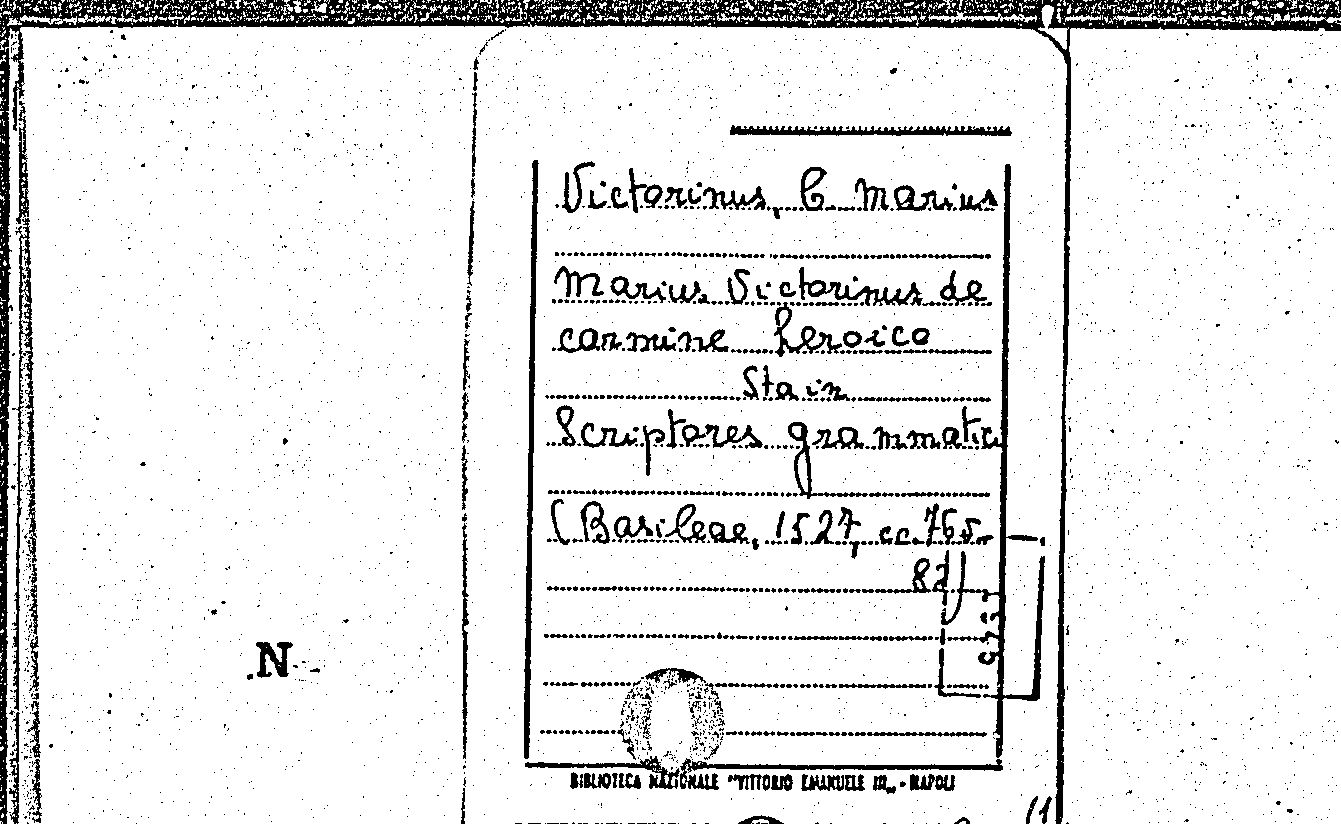 Victorinus, C. Marius
Marius Victorinus de
carmine heroico
Sta in
Scriptores grammatici
(Basileae, 1527, cc. 76v.-
82)
N
BIBLIOTECA NAZIONALE "VITTORIO EMANUELE III" - NAPOLI